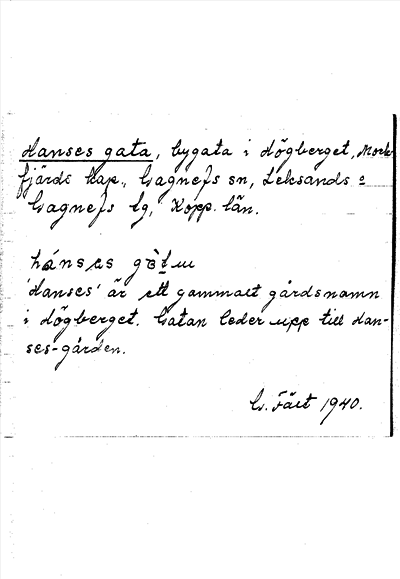 Hanses gata, bygata i Högberget, Mock-
fjärds kap., Gagnefs sn, Leksands o
Gagnefs tg, Kopp. län.
'Hanses' är ett gammalt gårdsnamn
i Högberget. Gatan leder upp till Han-
ses-gården.
G. Fält 1940.